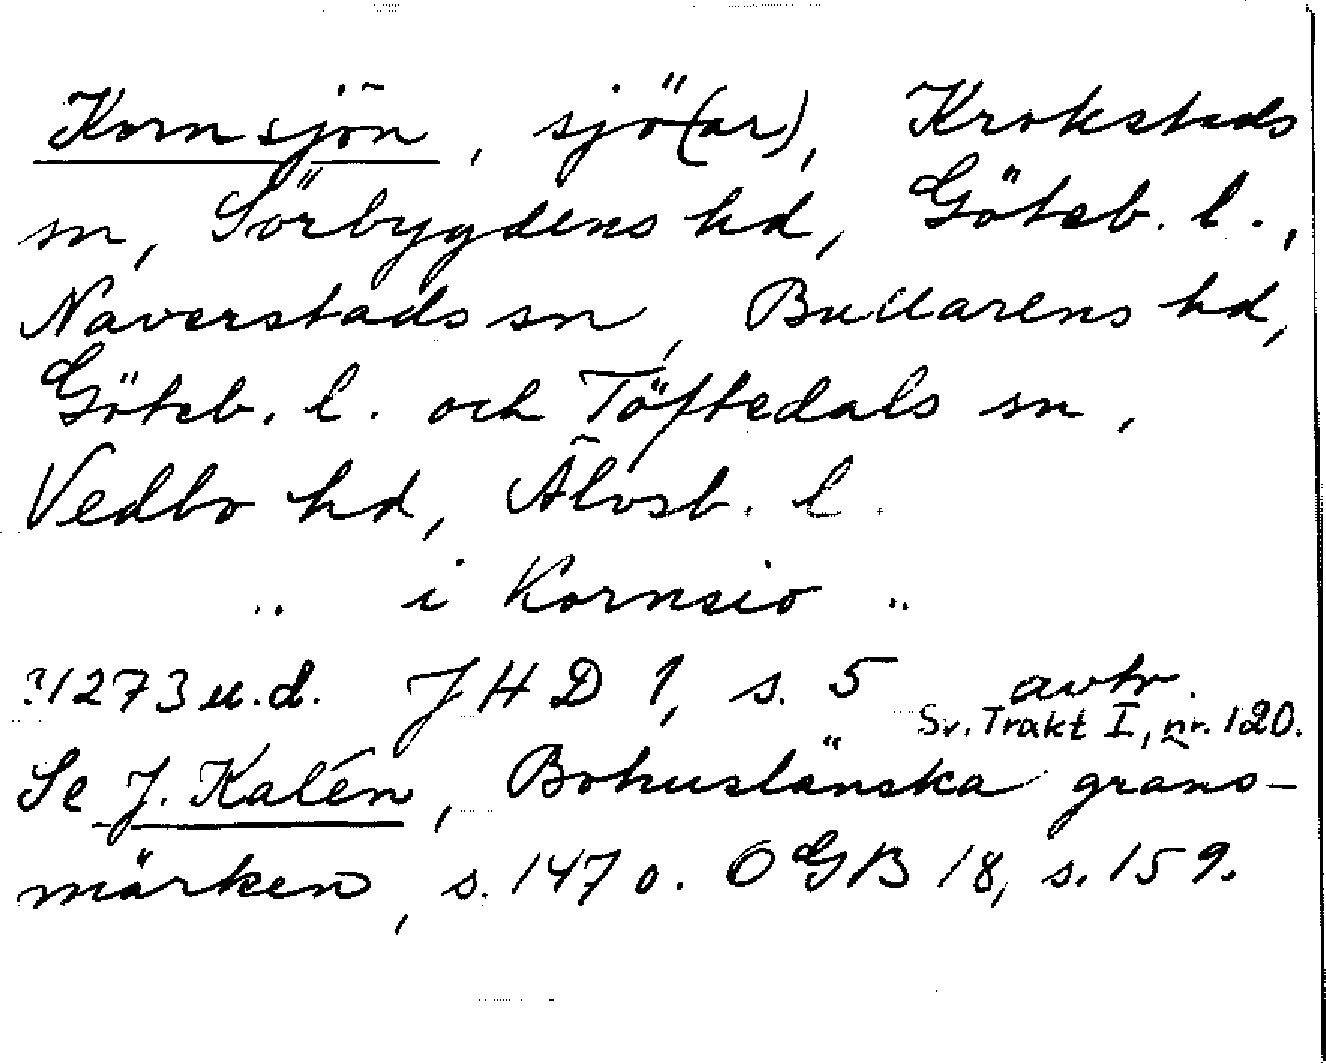 Kornsjön, sjö(ar), Krokstads
sn, Sörbygdens hd, Göteb. l.,
Naverstads sn, Bullarens hd,
Göteb. l. och Töftedals sn,
Vedbo hd, Älvsb. l.
" i Kornsio "
?1273 u.d. JHD 1, s. 5 avtr.
Sv. Trakt I, nr. 120.
Se J. Kalén, Bohuslänska gräns-
märken, s. 147 o. OGB 18, s. 159.